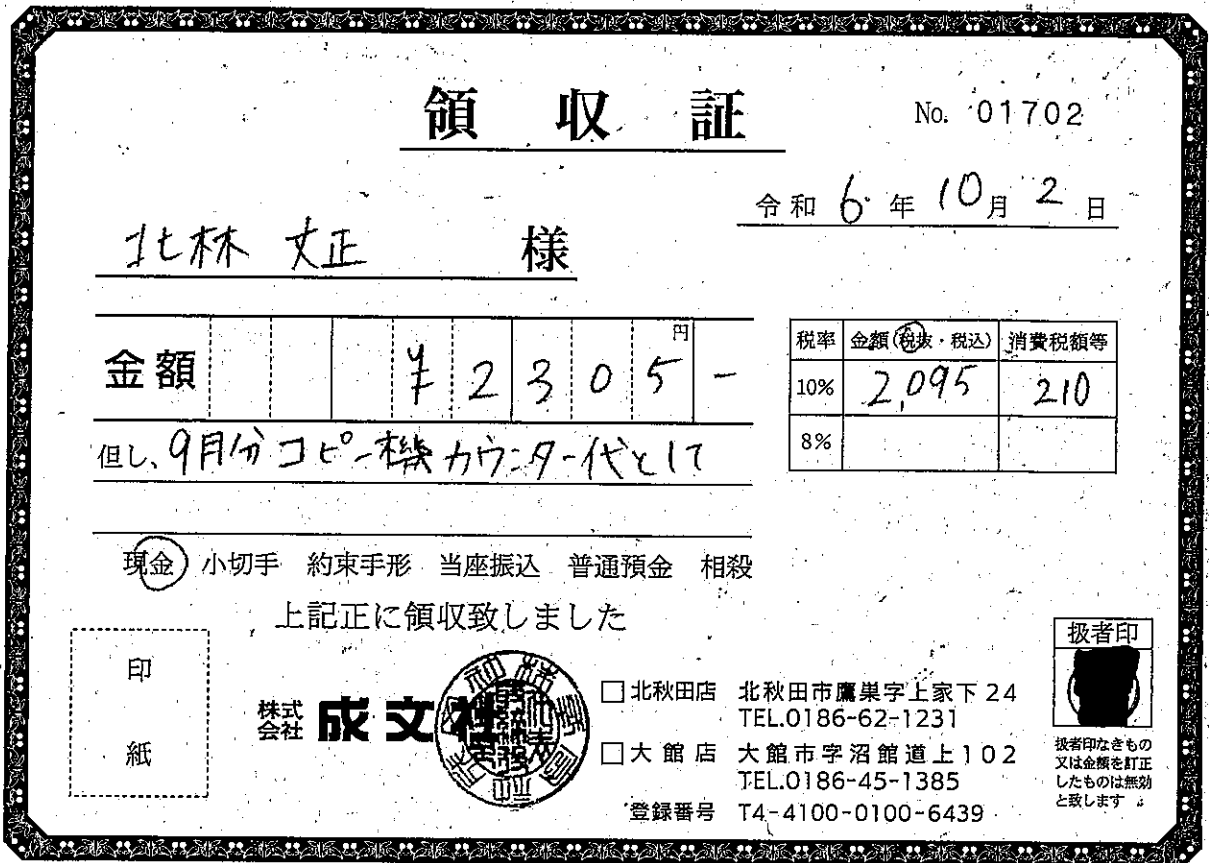 領収証
No. 01702
令和 6 年 10 月 2 日
北林 丈正 様
金額 ¥2305- 円
但し、9月分コピー機カウンター代として
税率 金額(税抜・税込) 消費税額等
10% 2,095 210
8%
現金 小切手 約束手形 当座振込 普通預金 相殺
上記正に領収致しました
印紙
株式会社 成文社
□北秋田店 北秋田市鷹巣字上家下24
TEL.0186-62-1231
□大館店 大館市字沼館道上102
TEL.0186-45-1385
登録番号 T4-4100-0100-6439
扱者印
扱者印なきもの
又は金額を訂正
したものは無効
と致します